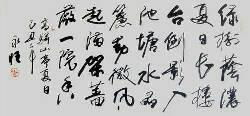 綠樹陰濃
夏日長樓
台倒影入
池塘水晶
簾動微風
起滿架薔
薇一院香
高駢山亭夏日